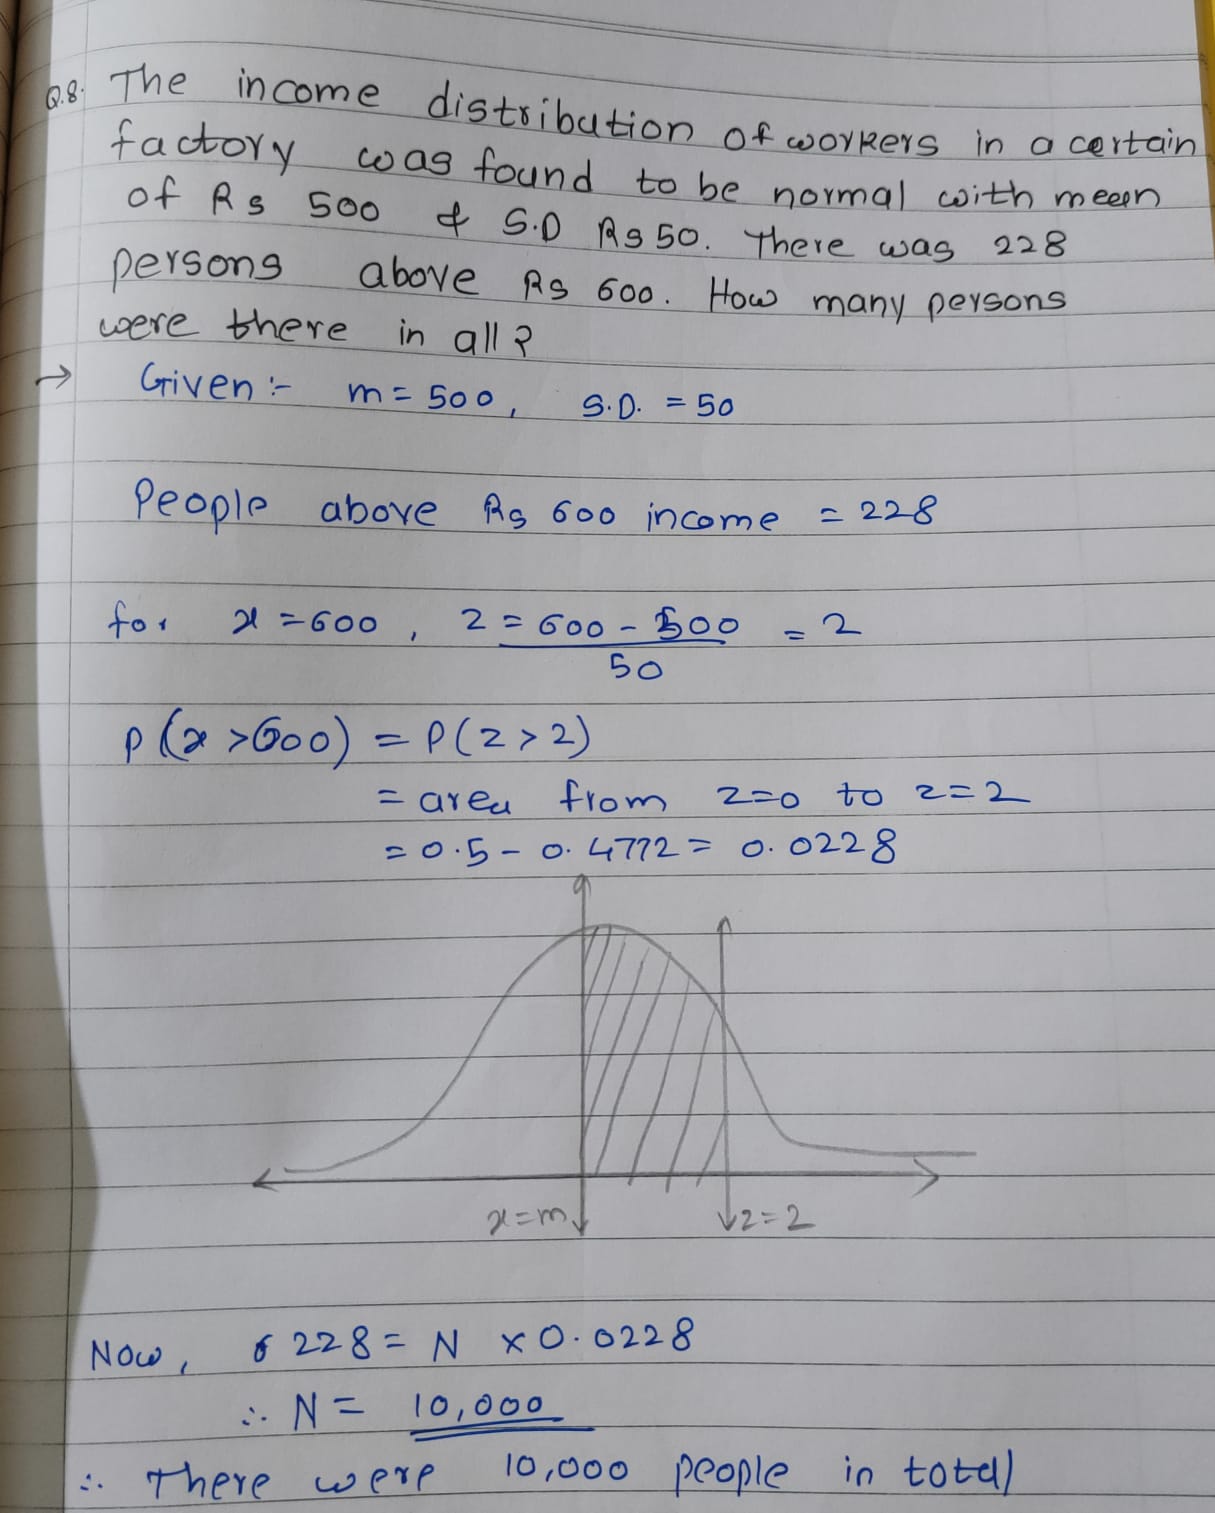 Q.8. The income distribution of workers in a certain
factory was found to be normal with meen
of Rs 500 & S.D Rs 50. There was 228
persons above Rs 600. How many persons
were there in all ?
→ Given :- m = 500, S.D. = 50
People above Rs 600 income = 228
for x = 600, z = 600 - 500 = 2
50
P(x > 600) = P(z > 2)
= area from z=0 to z=2
= 0.5 - 0.4772 = 0.0228
x=m z=2
Now, 228 = N x 0.0228
∴ N = 10,000
∴ There were 10,000 people in total